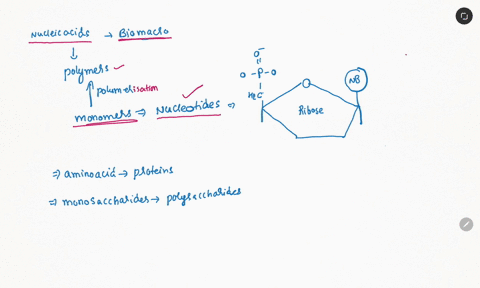 Nucleicacids → Biomacro
↓
polymers ✓
↑ polymerisation
monomers ⇒ Nucleotides ⇒
O⁻
O - P - O
H₂C
O
NB
Ribose
⇒ aminoacid → proteins
⇒ monosaccharides → polysaccharides